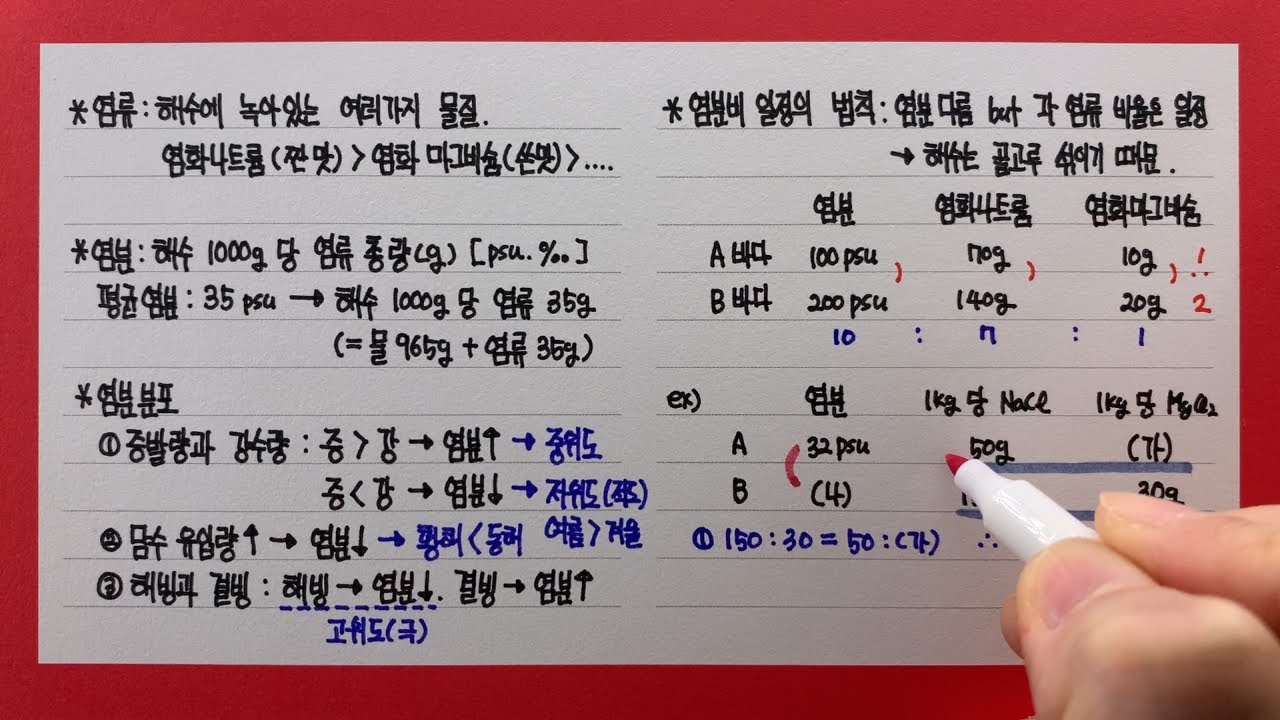 *염류 : 해수에 녹아있는 여러가지 물질.
염화나트륨(짠 맛) > 염화 마그네슘(쓴맛) > ....
*염분 : 해수 1000g 당 염류 총량(g) [psu. ‰]
평균염분 : 35 psu → 해수 1000g 당 염류 35g
(= 물 965g + 염류 35g)
*염분분포
① 증발량과 강수량 : 증 > 강 → 염분↑ → 중위도
증 < 강 → 염분↓ → 저위도(적도)
② 담수 유입량↑ → 염분↓ → 황해 < 동해 여름 > 겨울
③ 해빙과 결빙 : 해빙 → 염분↓. 결빙 → 염분↑
고위도(극)
*염분비 일정의 법칙 : 염분 다름 but 각 염류 비율은 일정
→ 해수는 골고루 섞이기 때문.
염분 염화나트륨 염화마그네슘
A 바다 100 psu 70g 10g 1
B 바다 200 psu 140g 20g 2
10 : 7 : 1
ex) 염분 1kg 당 NaCl 1kg 당 MgCl2
A 32 psu 50g (가)
B (나) 30g
① 150 : 30 = 50 : (가) ∴